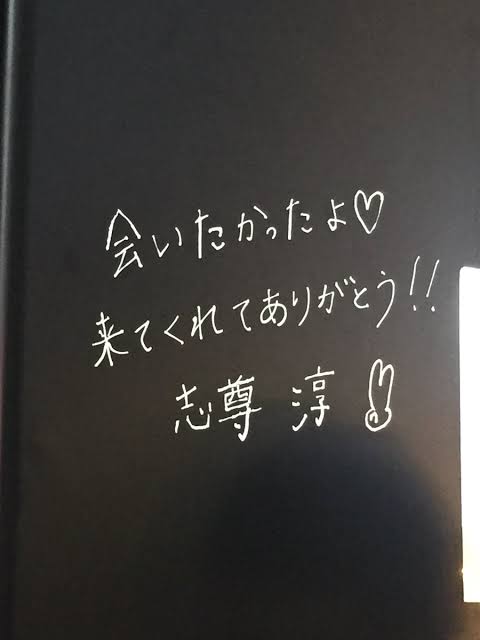 会いたかったよ♡
来てくれてありがとう!!
志尊 淳